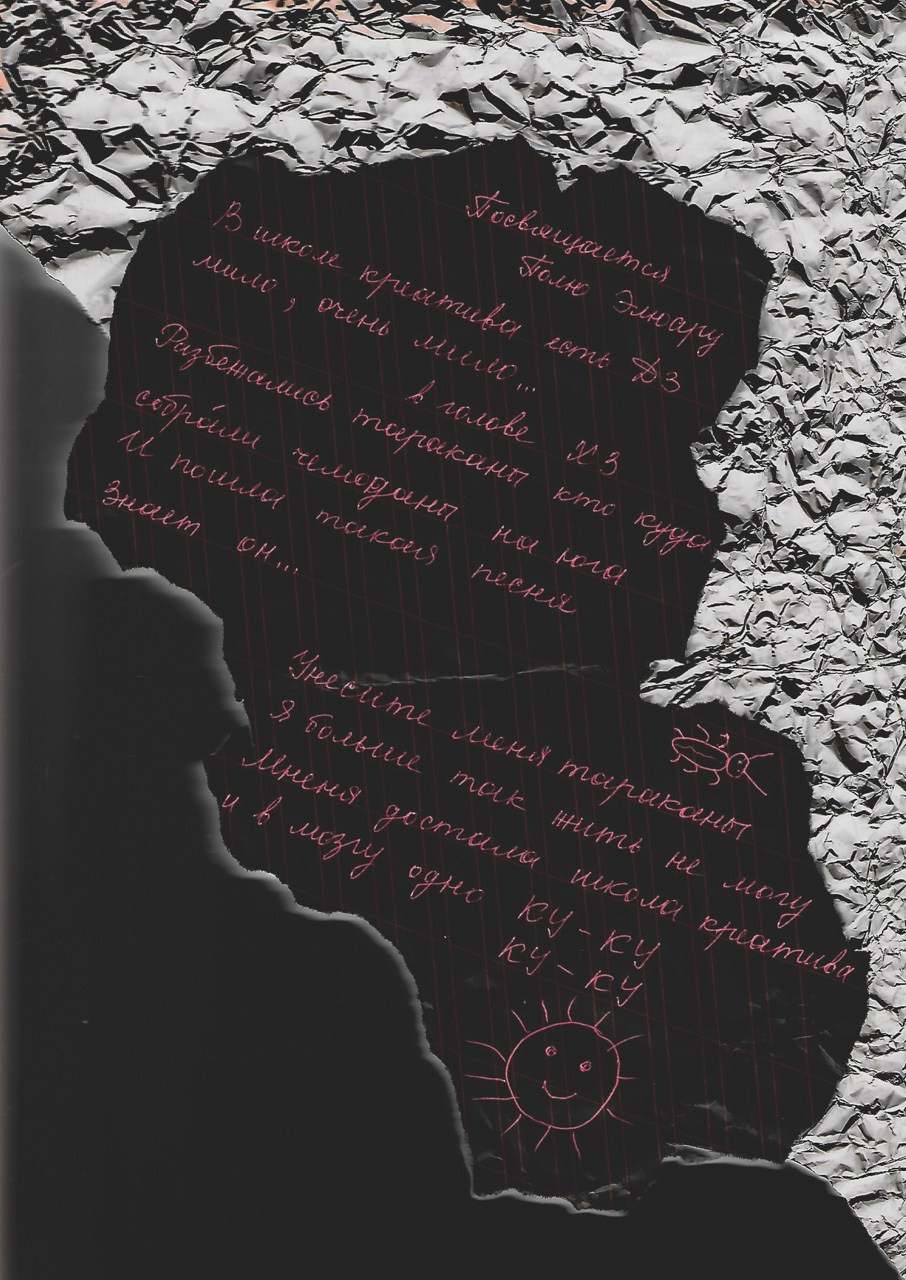 Посвящается
Полю Элюару
В школе креатива есть ДЗ
мило, очень мило...
в голове ХЗ
Разбежались тараканы кто куда
собрали чемоданы на юга
И пошла такая песня
Знает он...
Унесите меня тараканы
Я больше так жить не могу
Мненя достала школа креатива
и в мозгу одно КУ-КУ
КУ-КУ